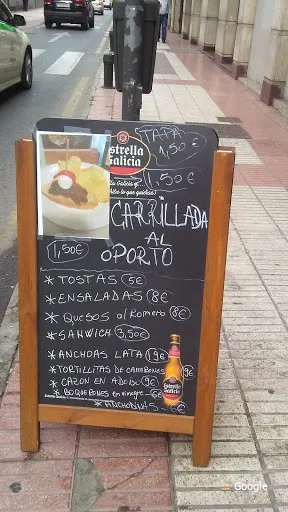 TAPA
1,50€
Estrella
Galicia
1,50€
CARRILLADA
AL
OPORTO
1,50€
* TOSTAS 5€
* ENSALADAS 8€
* QUESOS al Romero 8€
* SANWICH 3,50€
* ANCHOAS LATA 19€
* TORTILLITAS DE CAMARONES 9€
* CAZON EN ADOBO 9€
* BOQUERONES en vinagre 6€
Google